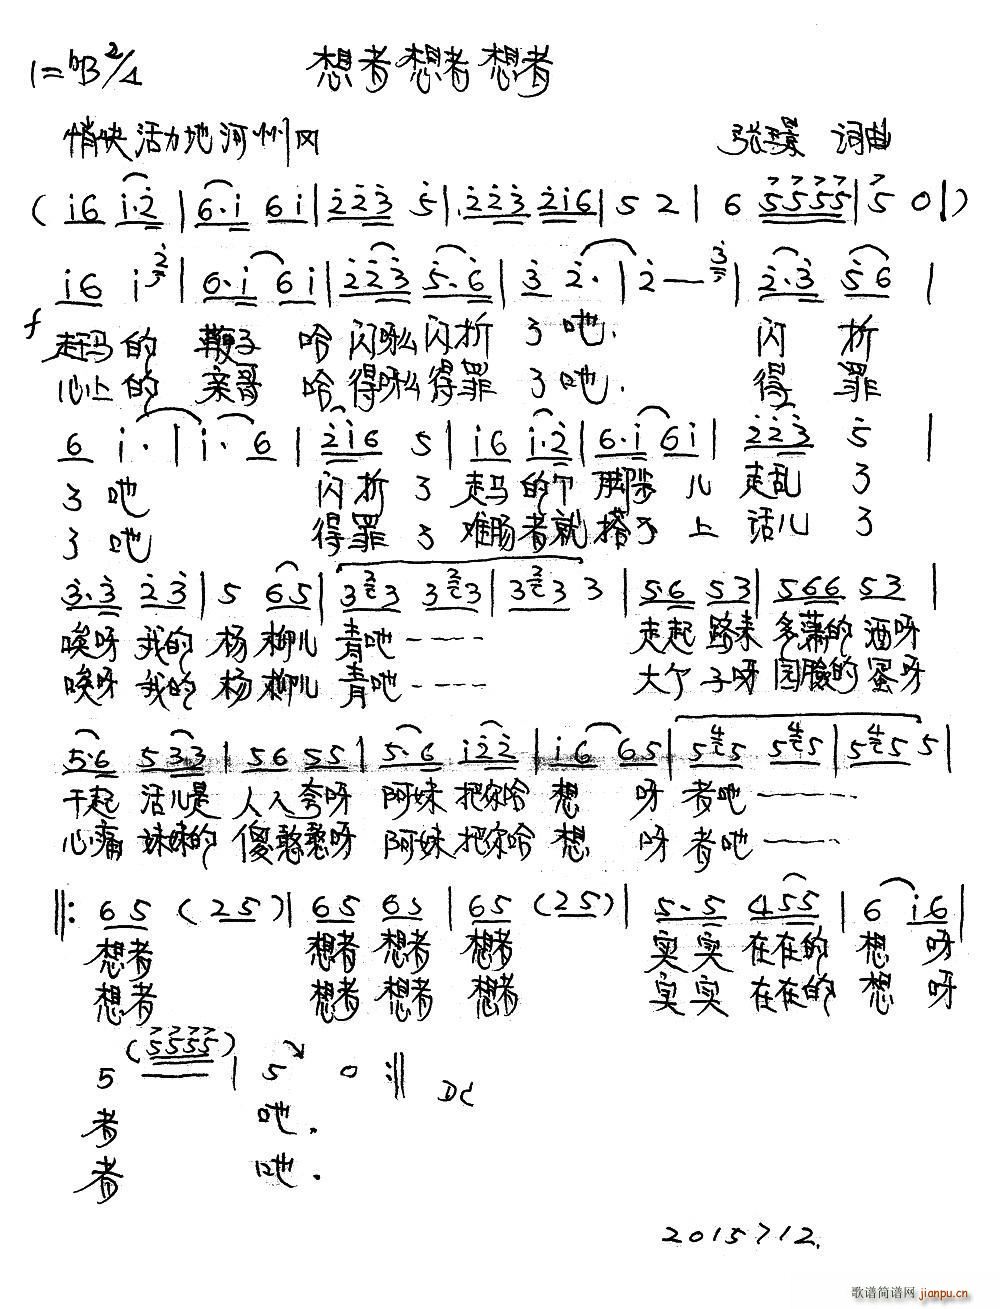 1=♭B 2/4 想者想者想者
悄快活力地河州风 张璟 词曲
( i6 i·2 | 6·i 6i | 223 5 | 223 2i6 | 5 2 | 6 5555 | 5 0 | )
i6 i | 6·i 6i | 223 5·6 | 3 2· | 2 — | 2·3 56 |
f 走马的 鞭子 哈 闪呀么闪折 了吔. 闪 折
心上的 亲哥 哈 得呀么得罪 了吔. 得 罪
6 i· | i· 6 | 2i6 5 | i6 i·2 | 6·i 6i | 223 5 |
了 吔 闪 折 了 走马 的个 脚步 儿 走乱 了
了 吔 得 罪 了 难肠者就 搭不 上 话儿 了
3·3 23 | 5 65 | 3 3 3 3 | 3 3 3 | 56 53 | 566 53 |
唉呀 我的 杨 柳儿 青吔---- 走起 路来 多蒲的 洒呀
唉呀 我的 杨 柳儿 青吔---- 大个 子呀 园脸的 蜜呀
5·6 533 | 56 55 | 5·6 i22 | i6 65 | 5 5 5 5 | 5 5 5 |
干起 活儿是 人人夸呀 阿妹 把你哈 想 呀 者吔----
心痛 妹妹的 傻憨憨呀 阿妹 把你哈 想 呀 者吔----
‖: 65 (25) | 65 65 | 65 (25) | 5·5 455 | 6 i6 |
想者 想者 想者 想者 实实 在在的 想 呀
想者 想者 想者 想者 实实 在在的 想 呀
5 (5555) | 5 0 :‖ DC
者 吔.
者 吔.
2015 7 12.
歌谱简谱网 jianpu.cn